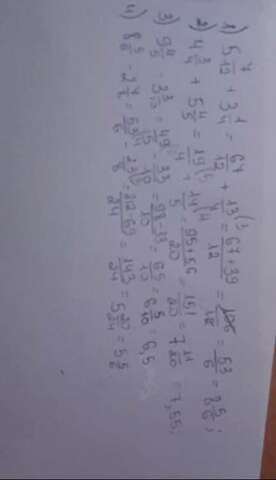 1) 5 7/12 + 3 1/4 = 67/12 + 13/4 (3 = 67+39/12 = 106/12 = 53/6 = 8 5/6;
2) 4 3/4 + 5 4/5 = 19/4 (5 + 14/5 (4 = 95+56/20 = 151/20 = 7 11/20 = 7,55;
3) 9 4/5 - 3 3/10 = 49/5 - 33/10 = 98-33/10 = 65/10 = 6 5/10 = 6,5
4) 8 5/6 - 2 7/8 = 53/6 - 23/8 = 212-69/24 = 143/24 = 5 20/24 = 5 5/6